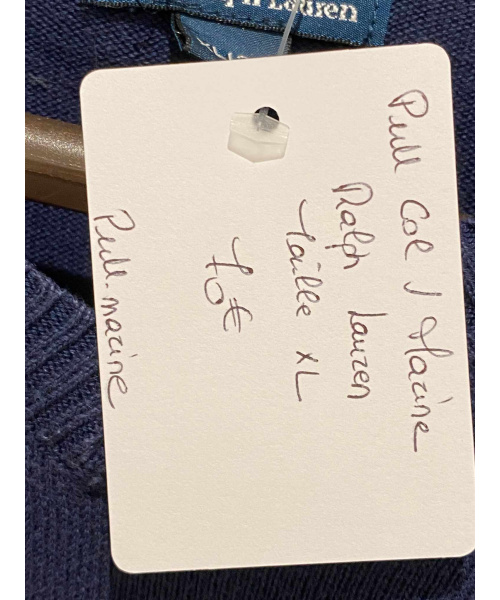 lph Lauren
XL
Pull Col V Marine
Ralph Lauren
taille XL
70€
Pull marine